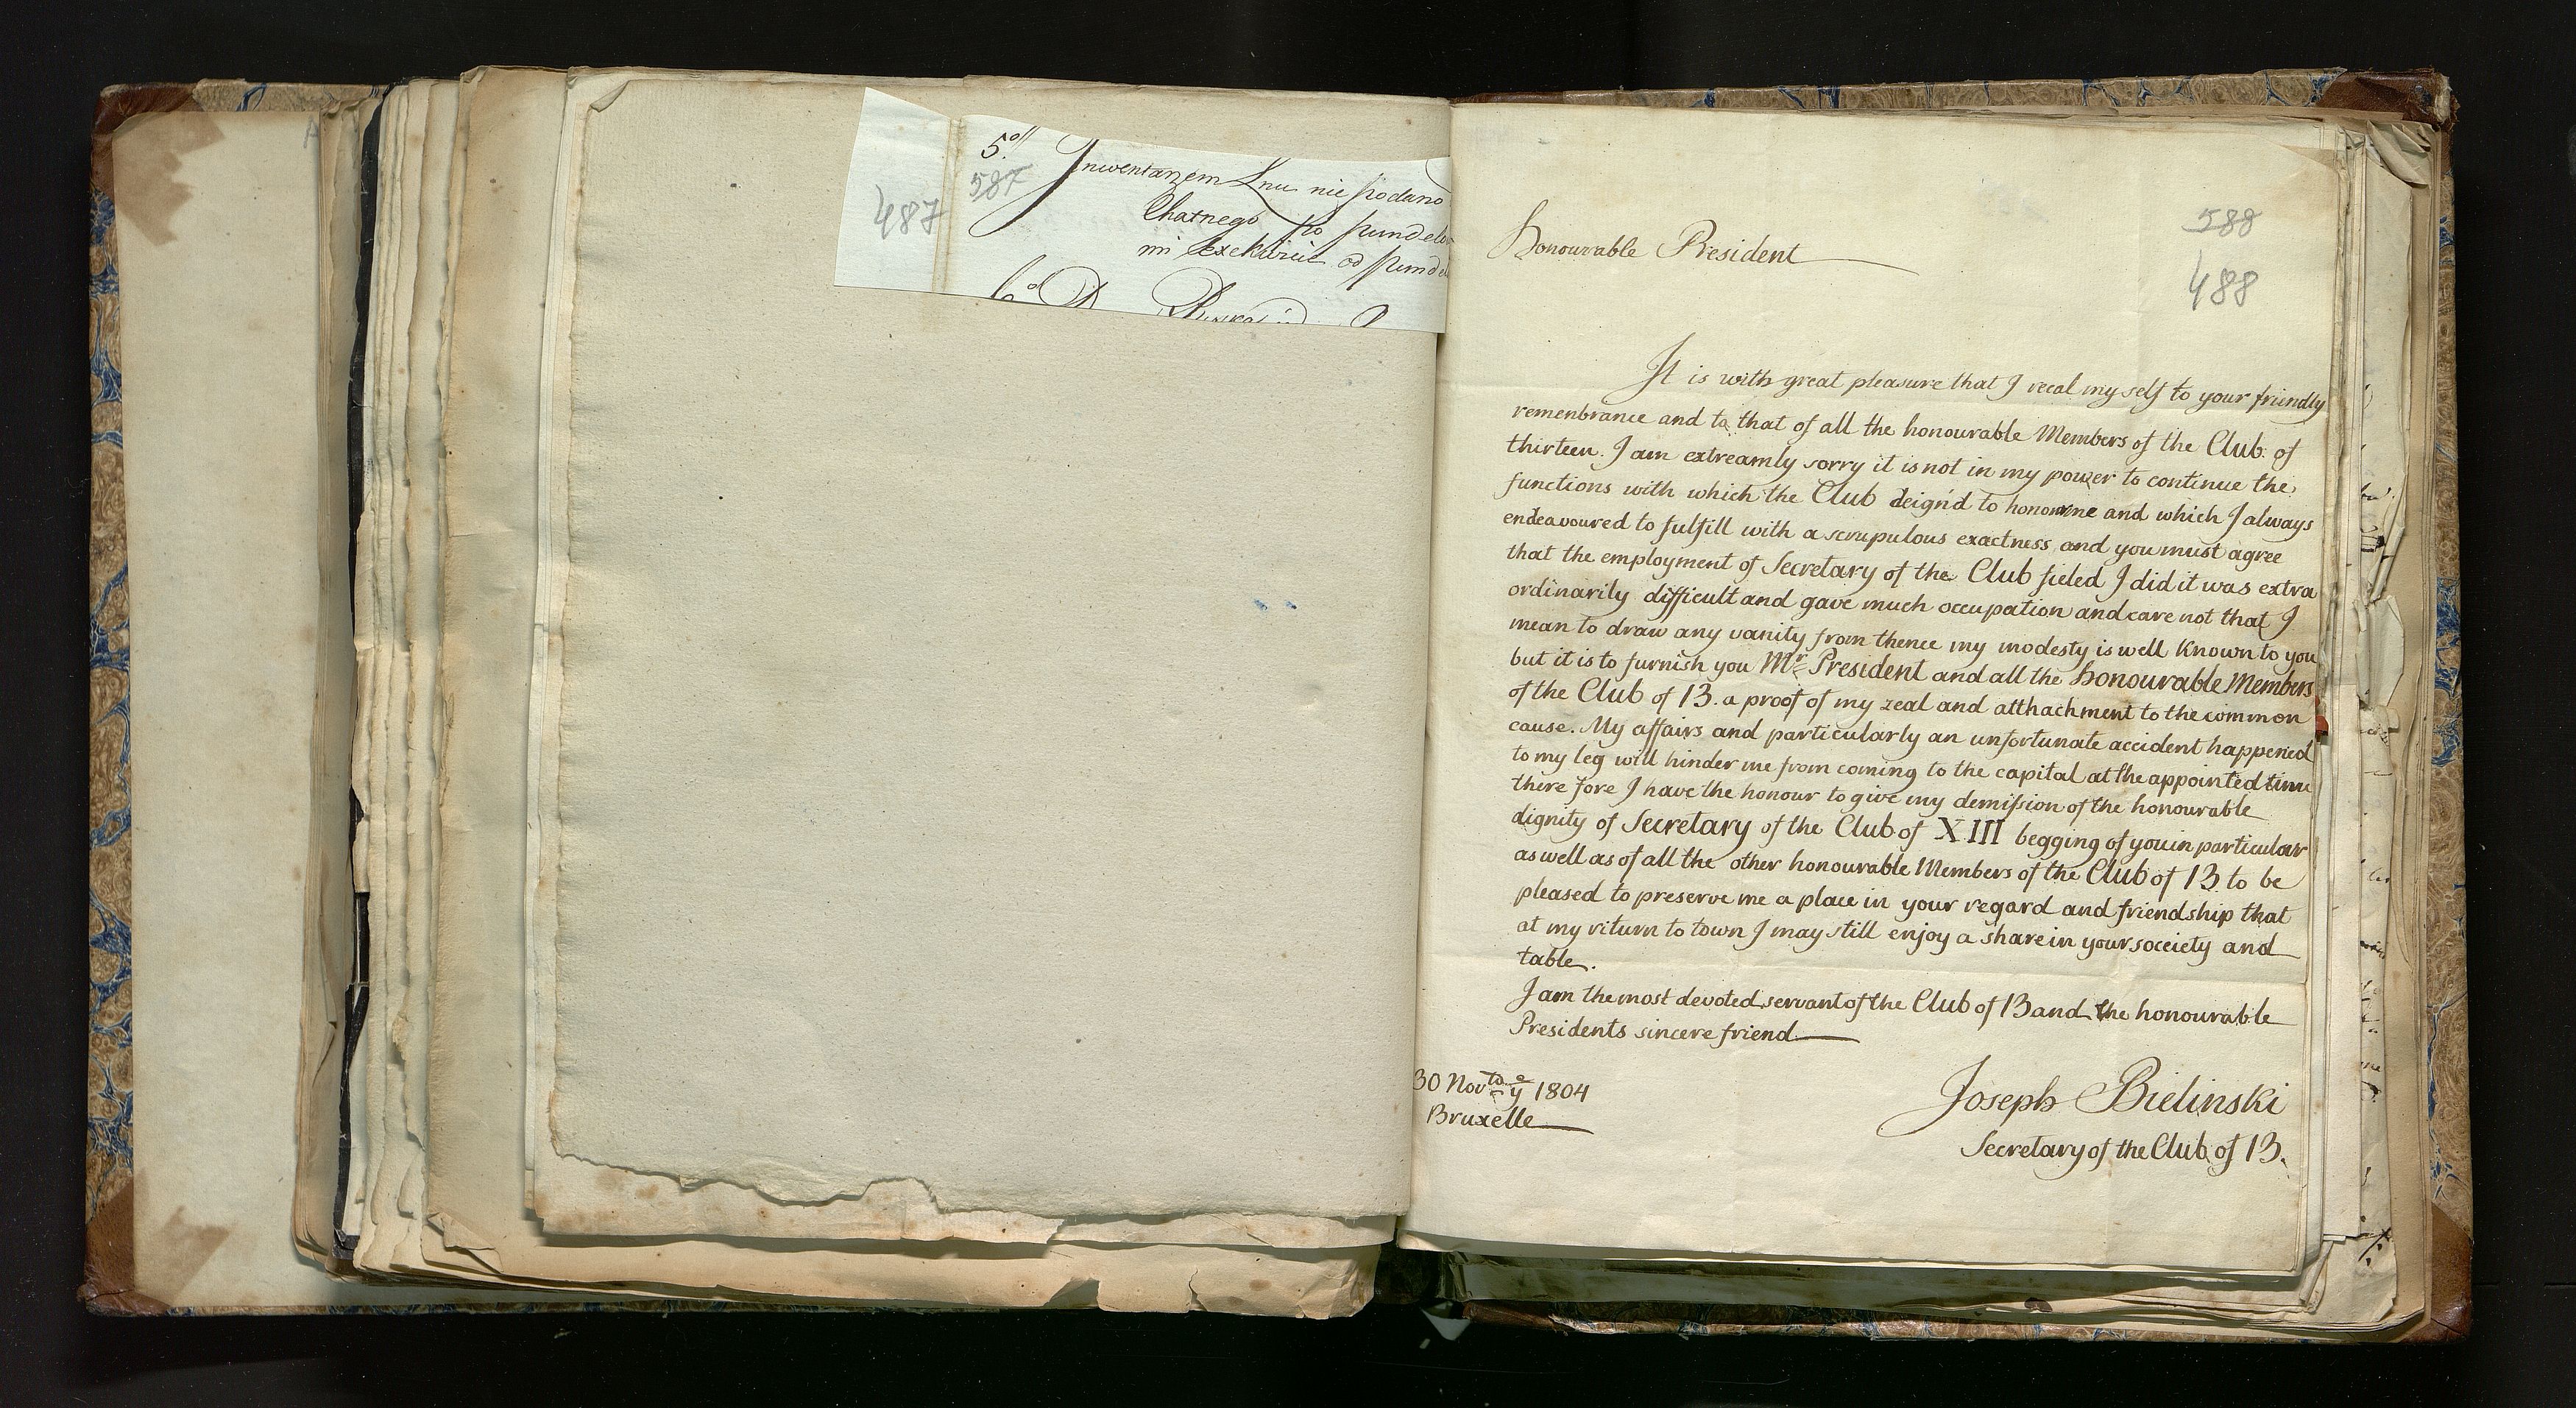 5º
587
487
Inwentarzem Lnu nie podano
mi
od
588
488
Honourable President
It is with great pleasure that I recal my self to your friendly
remenbrance and to that of all the honourable Members of the Club of
thirteen. I am extreamly sorry it is not in my power to continue the
functions with which the Club deign'd to honour me and which I always
endeavoured to fulfill with a scrupulous exactness and you must agree
that the employment of Secretary of the Club fieled I did it was extra
ordinarily difficult and gave much occupation and care not that I
mean to draw any vanity from thence my modesty is well known to you
but it is to furnish you Mr President and all the honourable Members
of the Club of 13. a proof of my zeal and atthachment to the common
cause. My affairs and particularly an unfortunate accident happened
to my leg will hinder me from coming to the capital at the appointed time
there fore I have the honour to give my demission of the honourable
dignity of Secretary of the Club of XIII begging of you in particular
as well as of all the other honourable Members of the Club of 13 to be
pleased to preserve me a place in your regard and friendship that
at my riturn to town I may still enjoy a share in your soceiety and
table.
I am the most devoted servant of the Club of 13 and the honourable
Presidents sincere friend
30 Nov 1804
Bruxelle
Joseph Bielinski
Secretary of the Club of 13.